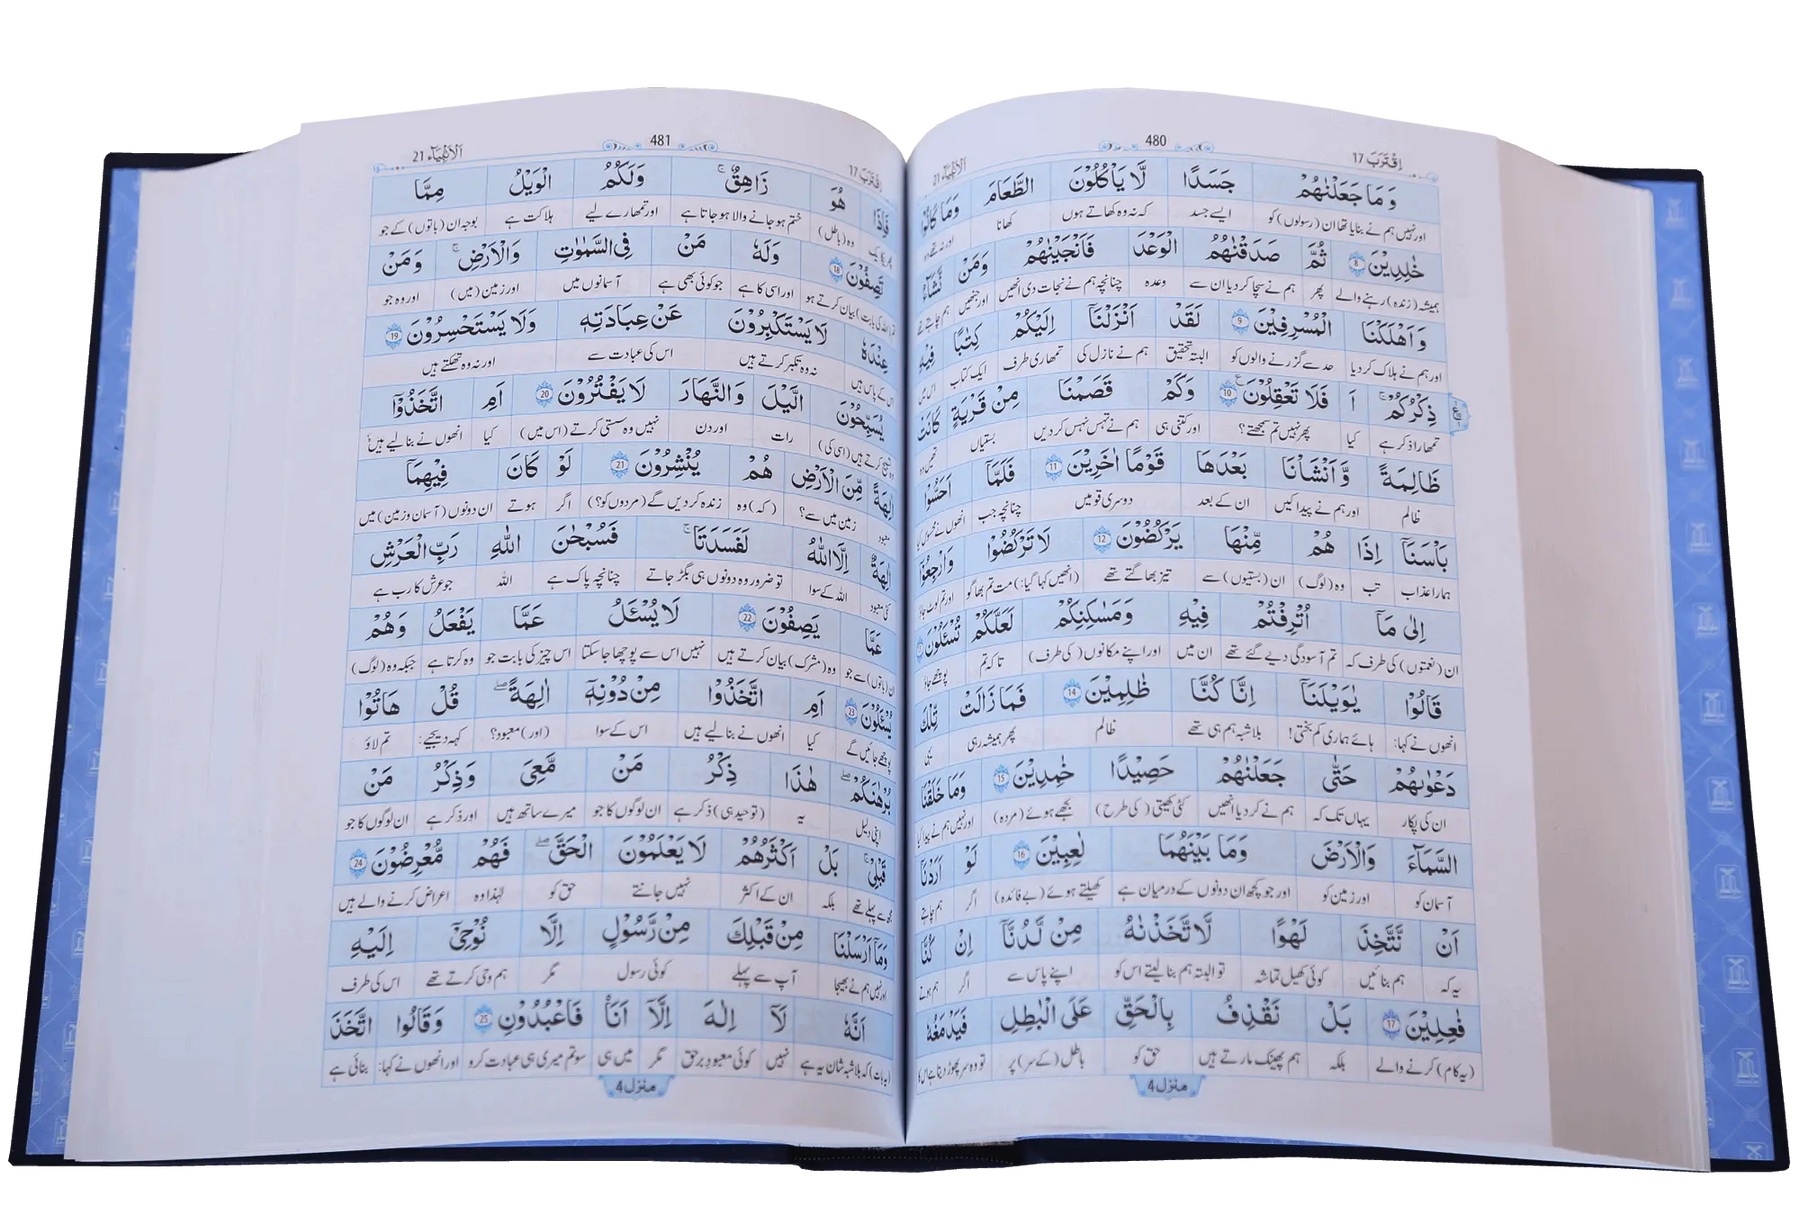 اِقْتَرَبَ 17
480
اَلْاَنْۢبِيَآء 21
وَمَا جَعَلْنٰهُمْ جَسَدًا لَّا يَاْكُلُوْنَ الطَّعَامَ وَمَا كَانُوْا
اور نہیں ہم نے بنایا تھا ان (رسولوں) کو ایسے جسد کہ نہ وہ کھاتے ہوں کھانا اور نہ تھے وہ
خٰلِدِيْنَ 8 ثُمَّ صَدَقْنٰهُمُ الْوَعْدَ فَاَنْجَيْنٰهُمْ وَمَنْ نَّشَآءُ
ہمیشہ (زندہ) رہنے والے پھر ہم نے سچا کر دیا ان سے وعدہ چنانچہ ہم نے نجات دی انھیں اور جنھیں ہم چاہتے تھے
وَاَهْلَكْنَا الْمُسْرِفِيْنَ 9 لَقَدْ اَنْزَلْنَآ اِلَيْكُمْ كِتٰبًا فِيْهِ
اور ہم نے ہلاک کر دیا حد سے گزرنے والوں کو البتہ تحقیق ہم نے نازل کی تمھاری طرف ایک کتاب اس میں
ذِكْرُكُمْ ۭ اَ فَلَا تَعْقِلُوْنَ 10 وَكَمْ قَصَمْنَا مِنْ قَرْيَةٍ كَانَتْ
تمھارا ذکر ہے کیا پھر نہیں تم سمجھتے؟ اور کتنی ہی ہم نے تہس نہس کر دیں بستیاں تھیں وہ
ظَالِمَةً وَّاَنْشَاْنَا بَعْدَهَا قَوْمًا اٰخَرِيْنَ 11 فَلَمَّآ اَحَسُّوْا
ظالم اور ہم نے پیدا کیں ان کے بعد دوسری قومیں چنانچہ جب انھوں نے محسوس کیا
بَاْسَنَآ اِذَا هُمْ مِّنْهَا يَرْكُضُوْنَ 12 لَا تَرْكُضُوْا وَارْجِعُوْٓا
ہمارا عذاب تب وہ (لوگ) ان (بستیوں) سے تیز بھاگتے تھے (انھیں کہا گیا:) مت تم بھاگو اور تم لوٹ جاؤ
اِلٰى مَآ اُتْرِفْتُمْ فِيْهِ وَمَسٰكِنِكُمْ لَعَلَّكُمْ تُسْـَٔلُوْنَ
ان (نعمتوں) کی طرف کہ تم آسودگی دیے گئے تھے ان میں اور اپنے مکانوں (کی طرف) تاکہ تم پوچھے جاؤ
قَالُوْا يٰوَيْلَنَآ اِنَّا كُنَّا ظٰلِمِيْنَ 14 فَمَا زَالَتْ تِّلْكَ
انھوں نے کہا: ہائے ہماری کم بختی! بلاشبہ ہم ہی تھے ظالم پھر ہمیشہ رہی یہی
دَعْوٰىهُمْ حَتّٰى جَعَلْنٰهُمْ حَصِيْدًا خٰمِدِيْنَ 15 وَمَا خَلَقْنَا
ان کی پکار یہاں تک کہ ہم نے کر دیا انھیں کٹی کھیتی (کی طرح) بجھے ہوئے (مردہ) اور نہیں ہم نے پیدا کیا
السَّمَآءَ وَالْاَرْضَ وَمَا بَيْنَهُمَا لٰعِبِيْنَ 16 لَوْ اَرَدْنَآ
آسمان کو اور زمین کو اور جو کچھ ان دونوں کے درمیان ہے کھیلتے ہوئے (بے فائدہ) اگر ہم چاہتے
اَنْ نَّتَّخِذَ لَهْوًا لَّاتَّخَذْنٰهُ مِنْ لَّدُنَّآ اِنْ كُنَّا
یہ کہ ہم بنائیں کوئی کھیل تماشہ تو البتہ ہم بنا لیتے اس کو اپنے پاس سے اگر ہم ہوتے
فٰعِلِيْنَ 17 بَلْ نَقْذِفُ بِالْحَقِّ عَلَى الْبَاطِلِ فَيَدْمَغُهٗ
(یہ کام) کرنے والے بلکہ ہم پھینک مارتے ہیں حق کو باطل (کے سر) پر تو وہ سر پھوڑ دیتا ہے اس کا
منزل 4
اِقْتَرَبَ 17
481
اَلْاَنْۢبِيَآء 21
فَاِذَا هُوَ زَاهِقٌ ۭ وَلَكُمُ الْوَيْلُ مِمَّا
وہ (باطل) ختم ہو جانے والا ہو جاتا ہے اور تمھارے لیے ہلاکت ہے بوجہ ان (باتوں) کے جو
تَصِفُوْنَ 18 وَلَهٗ مَنْ فِي السَّمٰوٰتِ وَالْاَرْضِ ۭ وَمَنْ
بیان کرتے ہو اور اسی کا ہے جو کوئی بھی ہے آسمانوں میں اور زمین (میں) اور وہ جو
عِنْدَهٗ لَا يَسْتَكْبِرُوْنَ عَنْ عِبَادَتِهٖ وَلَا يَسْتَحْسِرُوْنَ 19
اس کے پاس ہیں نہ وہ تکبر کرتے ہیں اس کی عبادت سے اور نہ وہ تھکتے ہیں
يُسَبِّحُوْنَ الَّيْلَ وَالنَّهَارَ لَا يَفْتُرُوْنَ 20 اَمِ اتَّخَذُوْٓا
تسبیح کرتے ہیں (اسی کی) رات اور دن نہیں وہ سستی کرتے (اس میں) کیا انھوں نے بنا لیے ہیں
اٰلِهَةً مِّنَ الْاَرْضِ هُمْ يُنْشِرُوْنَ 21 لَوْ كَانَ فِيْهِمَآ
معبود زمین میں سے؟ (کہ) وہ زندہ کر دیں گے (مردوں کو؟) اگر ہوتے ان دونوں (آسمان و زمین) میں
اٰلِهَةٌ اِلَّا اللّٰهُ لَفَسَدَتَا ۚ فَسُبْحٰنَ اللّٰهِ رَبِّ الْعَرْشِ
کئی معبود اللہ کے سوا تو ضرور وہ دونوں ہی بگڑ جاتے چنانچہ پاک ہے اللہ جو عرش کا رب ہے
عَمَّا يَصِفُوْنَ 22 لَا يُسْـَٔلُ عَمَّا يَفْعَلُ وَهُمْ
ان (باتوں) سے جو وہ (مشرک) بیان کرتے ہیں نہیں اس سے پوچھا جا سکتا اس چیز کی بابت جو وہ کرتا ہے جبکہ وہ (لوگ)
يُسْـَٔلُوْنَ 23 اَمِ اتَّخَذُوْا مِنْ دُوْنِهٖٓ اٰلِهَةً ۭ قُلْ هَاتُوْا
پوچھے جائیں گے کیا انھوں نے بنا لیے ہیں اس کے سوا (اور) معبود؟ کہہ دیجیے: تم لاؤ
بُرْهَانَكُمْ ۚ هٰذَا ذِكْرُ مَنْ مَّعِيَ وَذِكْرُ مَنْ
اپنی دلیل یہ (توحید ہی) ذکر ہے ان لوگوں کا جو میرے ساتھ ہیں اور ذکر ہے ان لوگوں کا جو
قَبْلِيْ ۭ بَلْ اَكْثَرُهُمْ لَا يَعْلَمُوْنَ الْحَقَّ فَهُمْ مُّعْرِضُوْنَ 24
مجھ سے پہلے تھے بلکہ ان کے اکثر نہیں جانتے حق کو لہٰذا وہ اعراض کرنے والے ہیں
وَمَآ اَرْسَلْنَا مِنْ قَبْلِكَ مِنْ رَّسُوْلٍ اِلَّا نُوْحِيْٓ اِلَيْهِ
اور نہیں ہم نے بھیجا آپ سے پہلے کوئی رسول مگر ہم وحی کرتے تھے اس کی طرف
اَنَّهٗ لَآ اِلٰهَ اِلَّآ اَنَا فَاعْبُدُوْنِ 25 وَقَالُوا اتَّخَذَ
(یہ بات) کہ بلاشبہ شان یہ ہے نہیں کوئی معبود برحق مگر میں ہی سو تم میری ہی عبادت کرو اور انھوں نے کہا: بنائی ہے
منزل 4